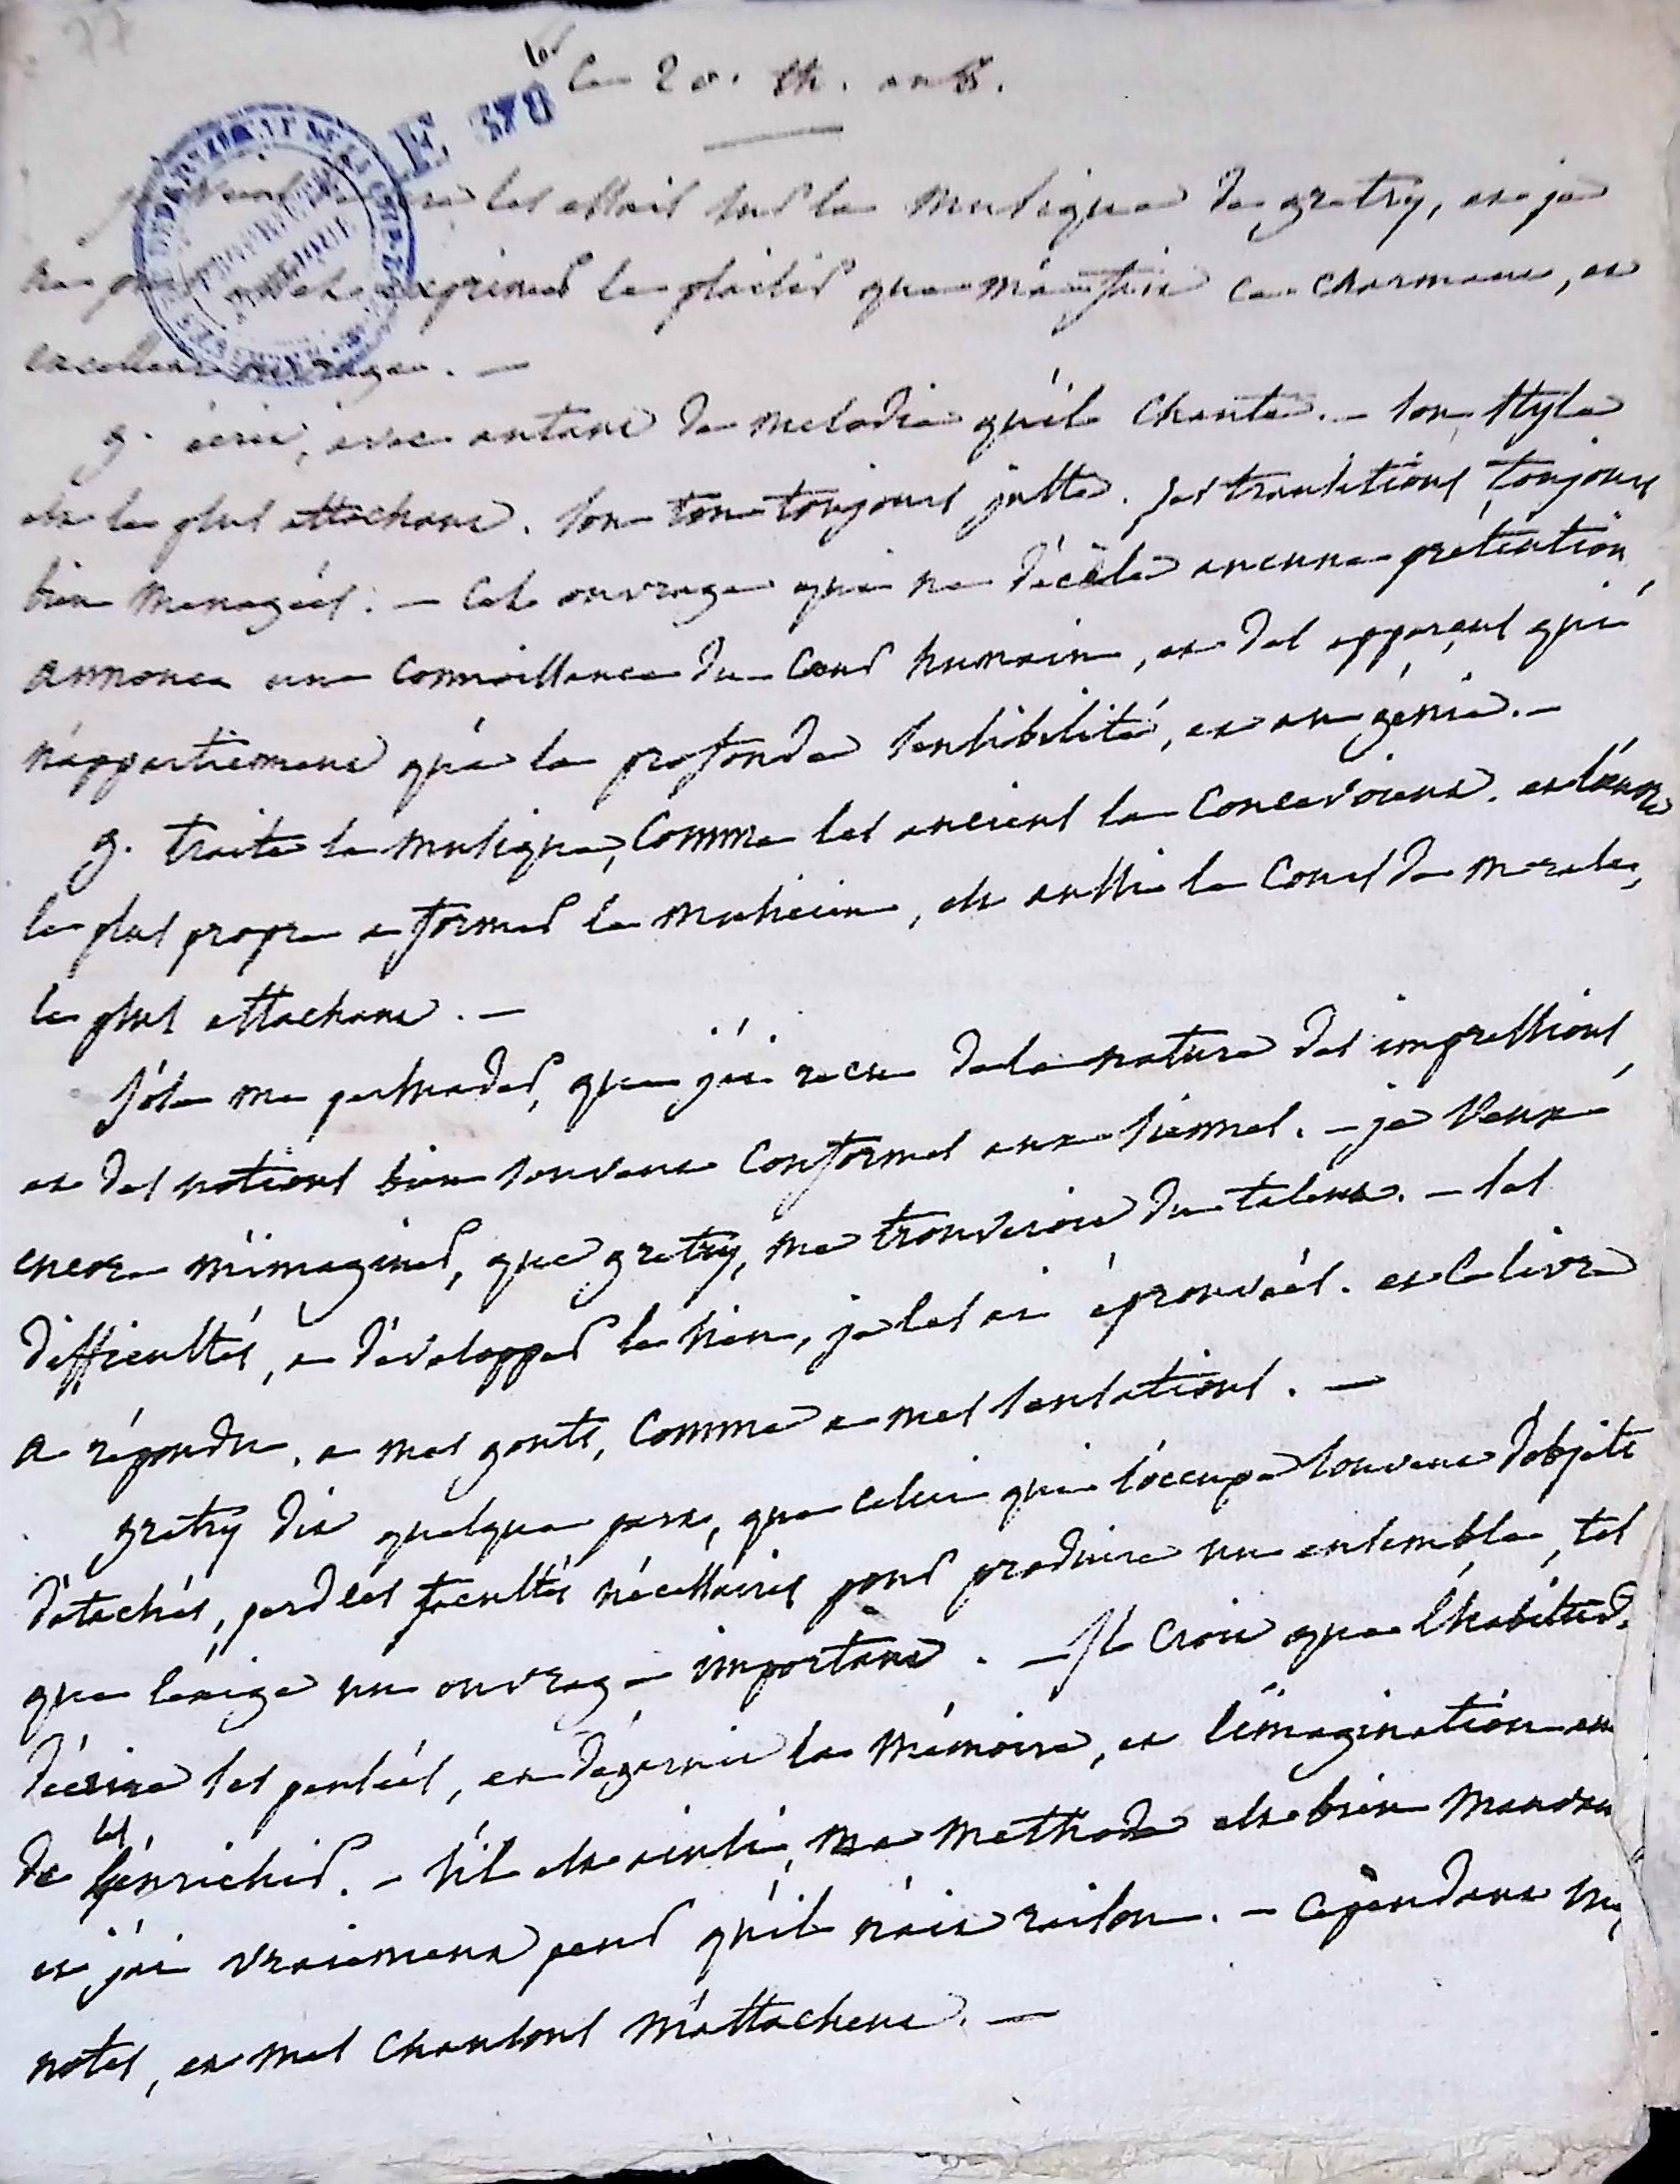 77
Ce 20. th. an 8.
E 378
les essais sur la musique de gretry, et je
ne puis exprimer le plaisir que m'a fait ce charmant, et
excellent ouvrage. —
g. écrit, avec autant de melodie qu'il chante. — son style
est le plus attachant. son ton toujours juste. ses transitions toujours
bien menageés. — cet ouvrage qui ne décèle aucune prétention,
annonce une connaissance du cœur humain, et des apperçus qui
n'appartiennent qu'à la profonde sensibilité, et au génie. —
g. traite la musique, comme les anciens la concevoient. et
le plus propre a former le musicien, est aussi le cours de morale,
le plus attachant. —
J'ose me persuader, que j'ai recu de la nature des impressions,
et des notions bien souvent conformes aux siennes. — je veux
encore m'imaginer, que gretry, me trouveroit du talent. — les
difficultés, a développer le sien, je les ai éprouveés. et ce livre
a répondu, a mes gouts, comme a mes sensations. —
gretry dit quelque part, que celui qui s'occupe souvent d'objets
détachés, perd les facultés nécessaires pour produire un ensemble, tel
que l'exige un ouvrage important. — Il croit que l'habitude
d'écrire ses penseés, en dégarnit la mémoire, et l'imagination au
de les enrichir. — s'il est ainsi, ma methode est bien
et j'ai vraiment peur qu'il n'ait raison. — cependant
notes, et mes chansons m'attachent. —